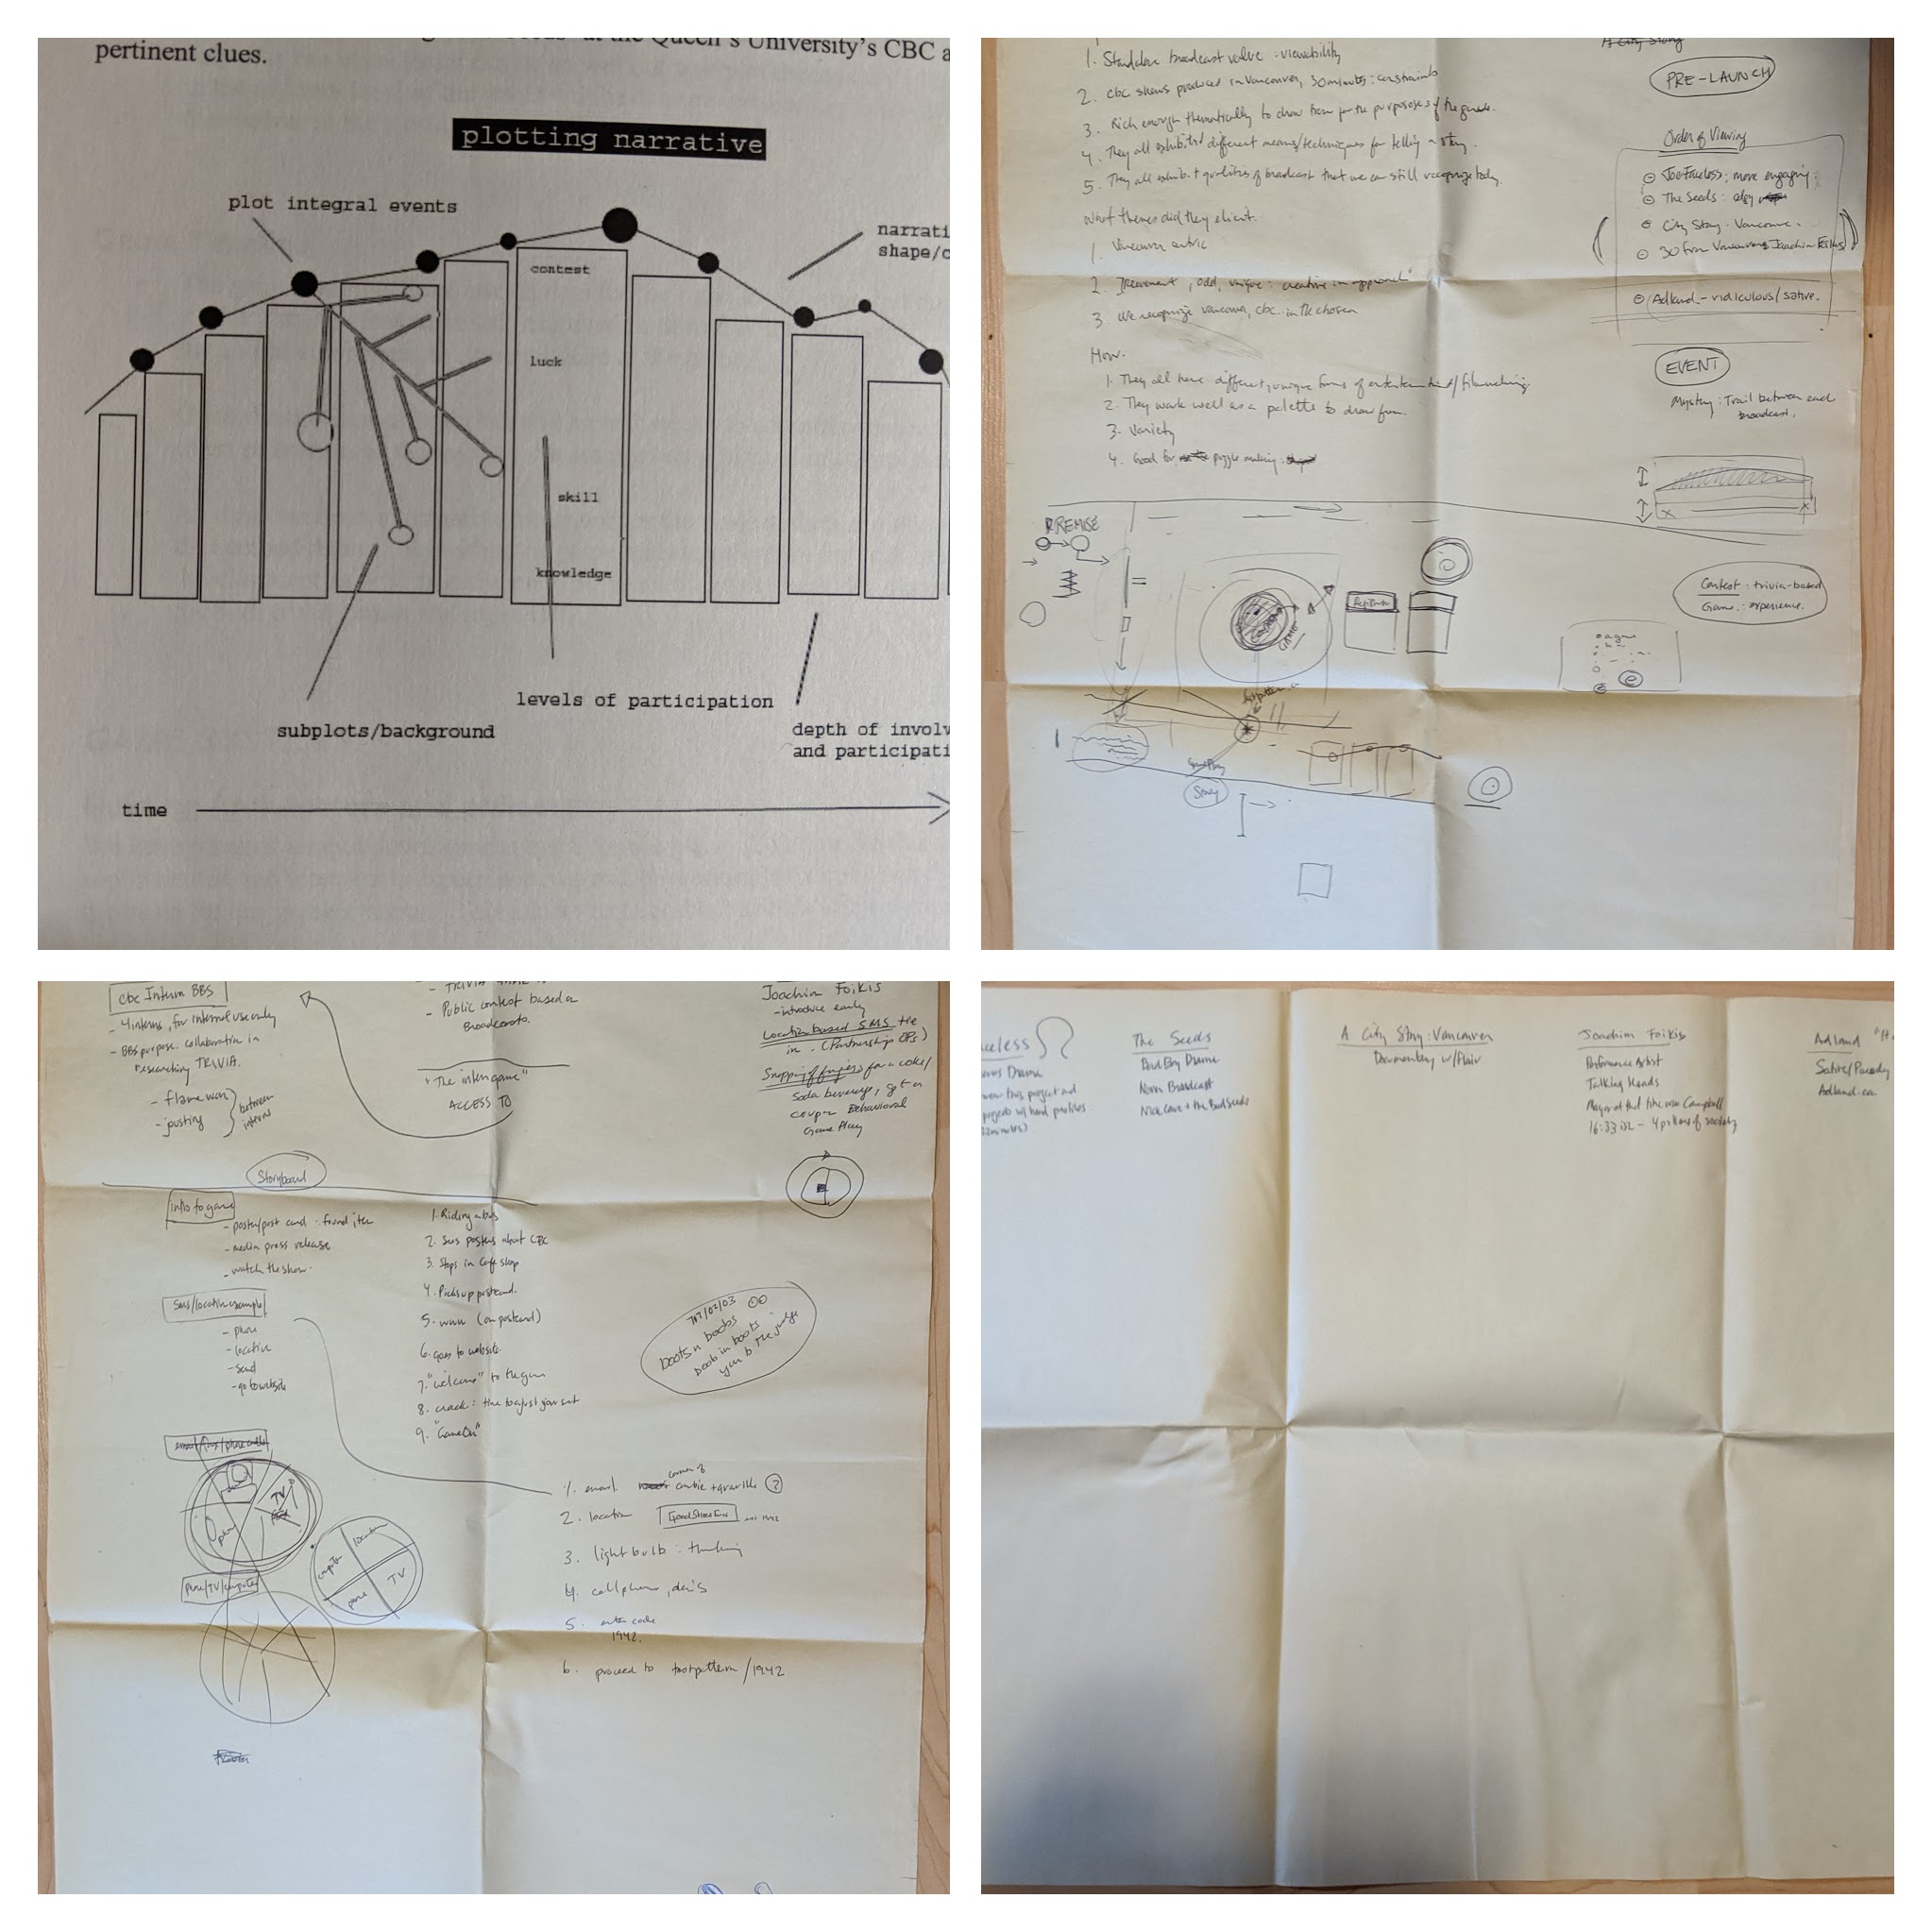 at the Queen's University's CBC
pertinent clues.
plotting narrative
plot integral events
narrati
shape/c
contest
luck
skill
knowledge
levels of participation
subplots/background
depth of involv
and participati
time
A City Story
PRE-LAUNCH
1. Standalone broadcast value : viewability
2. cbc shows produced in Vancouver, 30 minutes : constraints
3. Rich enough thematically to draw from for the purposes of the game.
4. They all exhibited different means/techniques for telling a story.
5. They all exhibit qualities of broadcast that we can still recognize today.
What themes did they elicit.
1. Vancouver centric
2. Irreverent, odd, unique : creative in approach
3. We recognize vancouver, cbc.. in the chosen
How.
1. They all have different, unique forms of entertainment/filmmaking
2. They work well as a palette to draw from.
3. Variety
4. Good for puzzle making.
Order of Viewing
Joe Faceless ; more engaging
The Seeds : edgy
City Story. Vancouver.
30 from Vancouver : Joachim Foikis
Adland - ridiculous/satire.
EVENT
Mystery : Trail between each
broadcast.
PREMISE
Contest : trivia-based
Game : experience.
Story
cbc Intern BBS
- 4 interns, for internal use only
- BBS purpose. collaboration in
researching TRIVIA.
- flame war
- posting
between
interns
- TRIVIA
- Public contest based on
Broadcasts.
"The intern game"
ACCESS TO
Joachim Foikis
- introduce early
Location based SMS tie
in. (Partnerships OPS)
Snapping of fingers for a coke/
Soda beverage, get a
coupon Behavioral
Game Play
Storyboard
intro to game
- poster/post card - found item
- media press release
- watch the show.
1. Riding a bus
2. Sees posters about CBC
3. Stops in Cafe shop
4. Picks up postcard.
5. www (on postcard)
6. goes to website.
7. "welcome" to the game
8. crack : time to adjust your set
9. "Game On"
Sms/location example
- phone
- location
- send
- go to website
boots n boobs
boob in boots
you b the judge
TV
phone
computer
location
phone
TV
phone/TV/computer
1. email. corner of cambie + granville ?
2. location
3. light bulb : thinking
4. cell phone,
5. enter code
1942.
6. proceed to testpattern/1942
celess
The Seeds
Bad Boy Drama
Norm Broadcast
Nick Cave + the Bad Seeds
A City Story : Vancouver
Documentary w/flair
Joachim Foikis
Performance Artist
Talking Heads
Mayor at that time was Campbell
16:33:52 - 4 pillars of society
Adland
Satire/Parody
Adland.ca